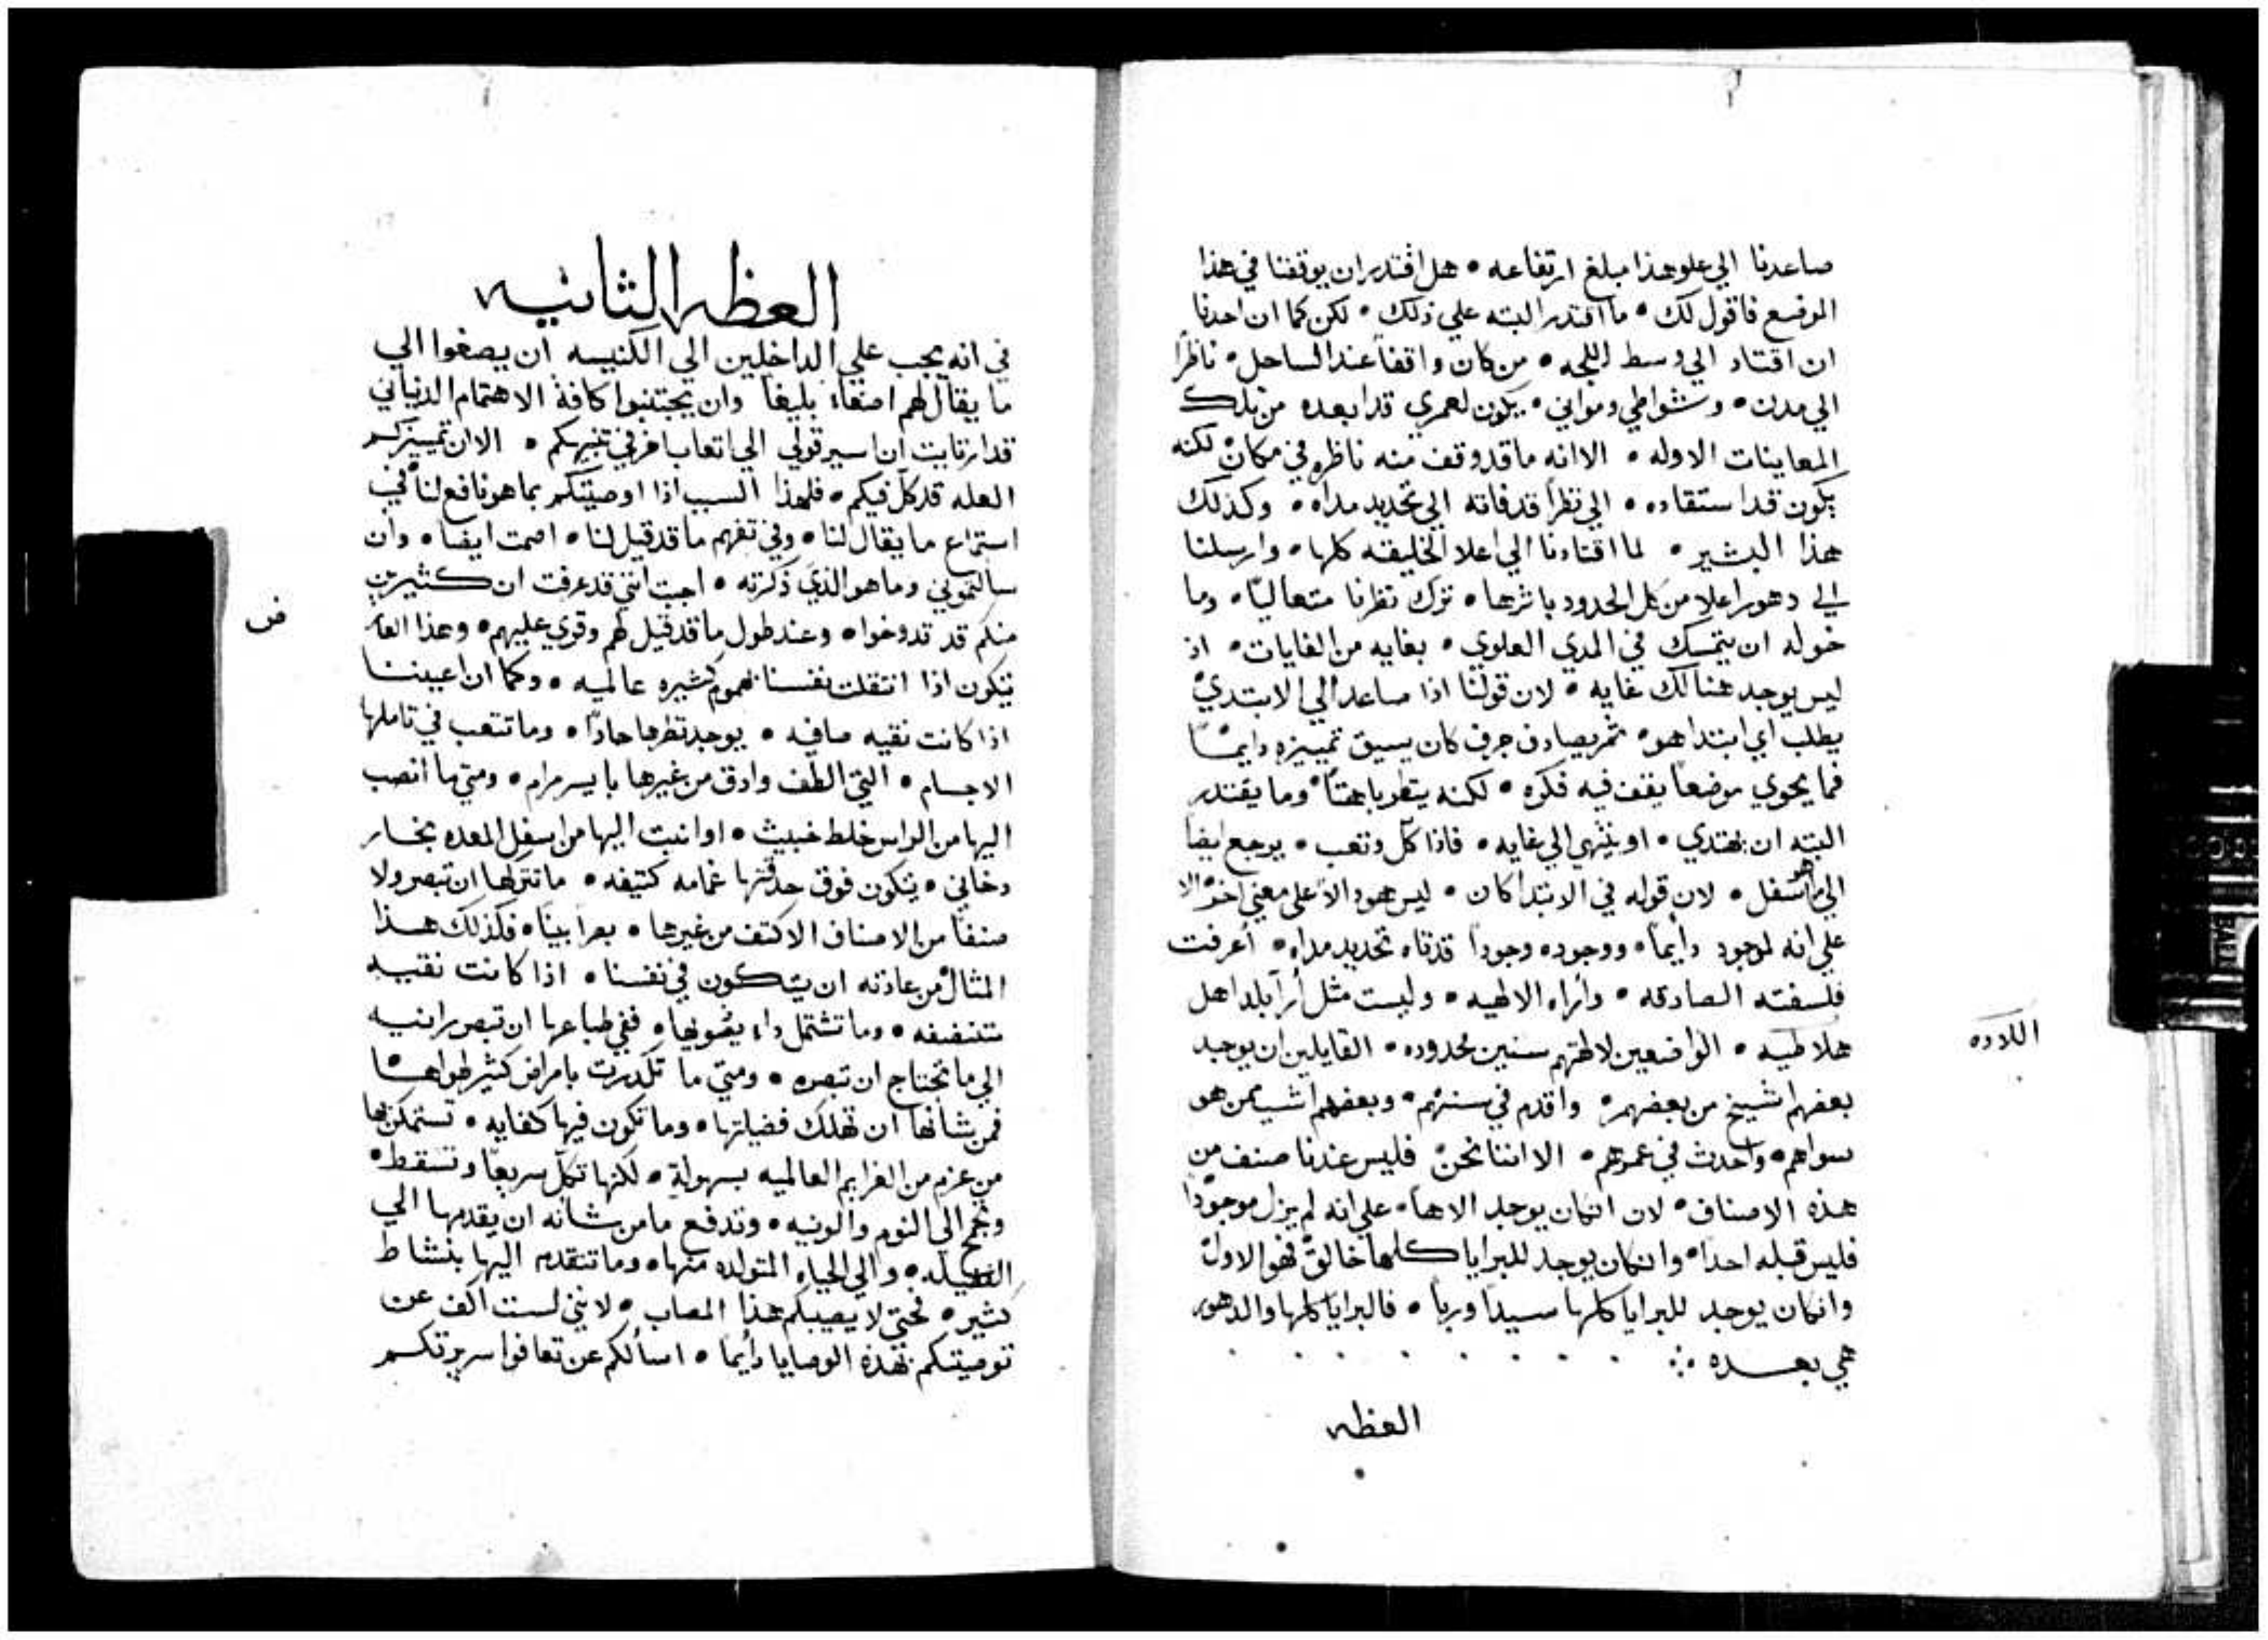 صاعدنا الي علو هذا مبلغ ارتفاعه • هل اقتدر ان يوقفنا في هذا
المرفسع فاقول لك • ما اقتدر البته علي ذلك • لكن كما ان احدنا
ان اقتاد الي وسط اللجه • من كان واقفاً عند الساحل • ناظراً
الي مدن • وشواطي ومواني • يكون لعمري قد ابعده من تلك
المعاينات الاوله • الا انه ما قد وقف منه ناظره في مكان لكنه
يكون قد استقاده • الي نظراً قد فاته الي تحديد مداه • وكذلك
هذا البشير • لما اقتادنا الي اعلا الخليقه كلها • وارسلنا
الي دهور اعلا من كل الحدود باثرها • ترك نظرنا متعالياً • وما
خوله ان يتمسك في المدي العلوي • بغايه من الغايات • اذ
ليس يوجد هنالك غايه • لان قولنا اذا صاعد الي الابتدي
يطلب اي ابتدا هو • ثم يصادف حرف كان يسبق تمييزه دايماً
فما يحوي موضعاً يقف فيه فكره • لكنه ينظر باهتاً • وما يقتدر
البته ان يهتدي • او ينتهي الي غايه • فاذا كل وتعب • يرجع ايضا
الي ما هو اسفل • لان قوله في الابتدا كان • ليس هو دالاً علي معني اخر الا
علي انه لموجود دايماً • ووجوده وجوداً قد فاه تحديد مداه • أعرفت
فلسفته الصادقه • وأراه الالهيه • وليست مثل أرا بلدا اهل
هلاطيه • الواضعين لالهتهم سنين محدوده • القايلين ان يوجد
اللادده
بعضهم اشيخ من بعضهم • واقدم في سنهم • وبعضهم اشب ممن هو
سواهم • واحدث في عمرهم • الا اننا نحن فليس عندنا صنف من
هذه الاصناف • لان انكان يوجد الاهاً • علي انه لم يزل موجوداً
فليس قبله احداً • وانكان يوجد للبرايا كلها خالق فهو الاول
وانكان يوجد للبرايا كلها سيداً ورباً • فالبرايا كلها والدهور
هي بعده ∴
العظه
العظه الثانيه
في انه يجب علي الداخلين الي الكنيسه ان يصغوا الي
ما يقال لهم اصغاء بليغاً وان يجتنبوا كافة الاهتمام الدنياني
قد ارتايت ان اسير قولي الي اتعاب اخر في تنبيهكم • الا ان تمييزكم
العله قد كل فيكم • فلهذا السبب اذا اوصيتكم بما هو نافع لنا في
استماع ما يقال لنا • وفي تفهم ما قد قيل لنا • اصمت ايضا • وان
سالتموني وما هو الذي ذكرته • اجبت انني قد عرفت ان كثيرين
ض
منكم قد تدوخوا • وعند طول ما قد قيل لهم وقري عليهم • وهذا
يتكون اذا انتقلت نفسنا بهموم كثيره عالميه • وكما ان اعيننا
اذا كانت نقيه صافيه • يوجد نظرها حاداً • وما تتعب في تاملها
الاجسام • التي الطف وادق من غيرها بايسر مرام • ومتي ما انصب
اليها من الراس خلط خبيث • او انبت اليها من اسفل المعده بخار
دخاني • يتكون فوق حدقتها غمامه كثيفه • ما تتركها ان تبصر ولا
صنفاً من الاصناف الاكثف من غيرها • بصراً بيناً • فكذلك هذا
المثال من عادته ان يتكون في نفسنا • اذا كانت نقيه
متنضفه • وما تشتمل داء يشوبها • ففي طباعها ان تبصر رانيه
الي ما تحتاج ان تبصره • ومتي ما تكدرت بامراض كثير طراها
فمن شانها ان تهلك فضيلتها • وما تكون فيها كفايه • تستمكن بها
من عزم من العزايم العالميه بسهولة • لكنها تكل سريعاً وتسقط •
وتجمح الي النوم والونيه • وتدفع ما من شانه ان يقدمها الي
الفضيله • والي الحياه المتولده منها • وما تتقدم اليها بنشاط
كثير • فحتي لا يصيبكم هذا المصاب • لانني لست اكف عن
توصيتكم بهذه الوصايا دايماً • اسألكم عن تعافوا سريرتكم